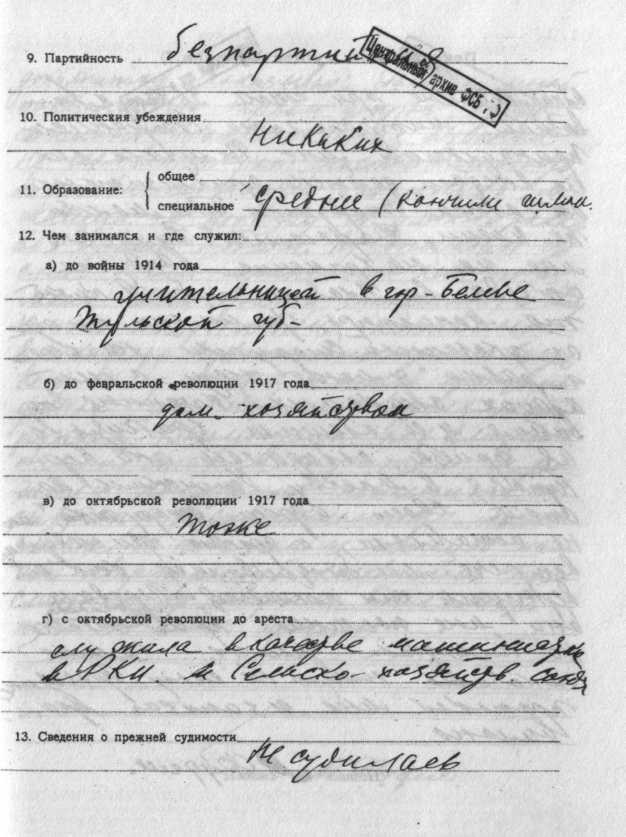 9. Партийность безпартийная
Центральный архив ФСБ
10. Политические убеждения
никаких
11. Образование: общее
специальное среднее (кончила
12. Чем занимался и где служил:
а) до войны 1914 года
учительницей в гор- Белеве
Тульской губ-
б) до февральской революции 1917 года
дом. хозяйством
в) до октябрьской революции 1917 года
тоже
г) с октябрьской революции до ареста
служила в качестве машинистки
в РКИ. и Сельско- хозяйств. союз
13. Сведения о прежней судимости
Не судилась